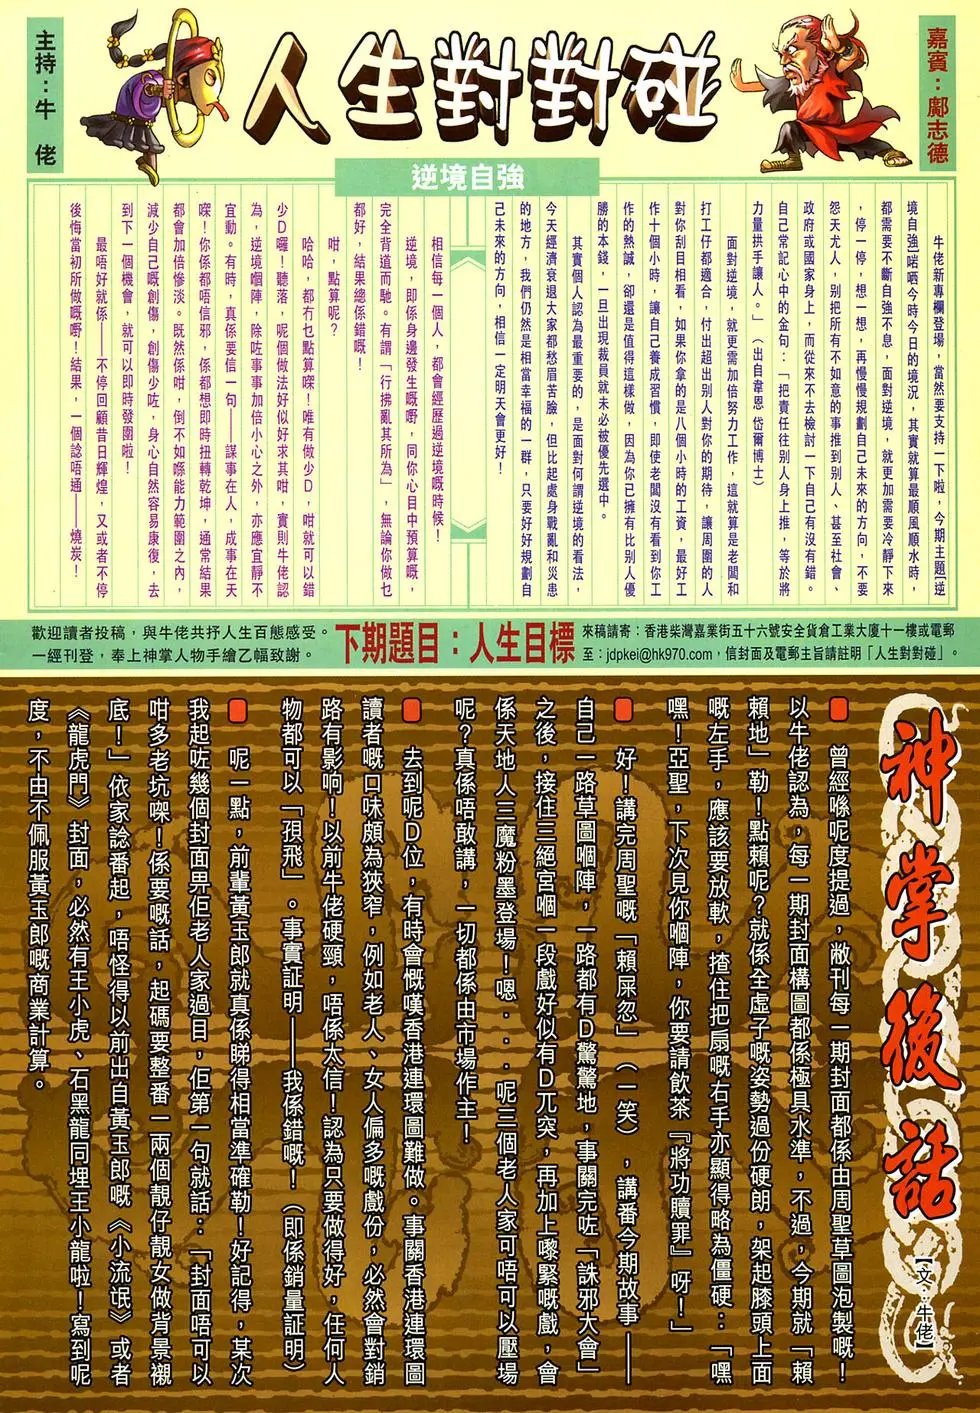 人生對對碰
主持：牛佬
嘉賓：鄺志德
逆境自強
牛佬新專欄登場，當然要支持一下啦，今期主題[逆
境自強]啱晒今時今日的境況，其實就算最順風順水時，
都需要不斷自強不息，面對逆境，就更加需要冷靜下來
，停一停，想一想，再慢慢規劃自己未來的方向，不要
怨天尤人，別把所有不如意的事推到別人、甚至社會、
政府或國家身上，而從來不去檢討一下自己有沒有錯。
自己常記心中的金句：「把責任往別人身上推，等於將
力量拱手讓人。」（出自韋恩 岱爾博士）
面對逆境，就更需加倍努力工作，這就算是老闆和
打工仔都適合，付出超出別人對你的期待，讓周圍的人
對你刮目相看，如果你拿的是八個小時的工資，最好工
作十個小時，讓自己養成習慣，即使老闆沒有看到你工
作的熱誠，卻還是值得這樣做，因為你已擁有比別人優
勝的本錢，一旦出現裁員就未必被優先選中。
其實個人認為最重要的，是面對何謂逆境的看法，
今天經濟衰退大家都愁眉苦臉，但比起處身戰亂和災患
的地方，我們仍然是相當幸福的一群，只要好好規劃自
己未來的方向，相信一定明天會更好！
相信每一個人，都會經歷過逆境嘅時候！
逆境，即係身邊發生嘅嘢，同你心目中預算嘅，
完全背道而馳。有謂「行拂亂其所為」，無論你做乜
都好，結果總係錯嘅！
咁，點算呢？
哈哈，都冇乜點算㗎！唯有做少D，咁就可以錯
少D囉！聽落，呢個做法好似好求其咁，實則牛佬認
為，逆境嗰陣，除咗事事加倍小心之外，亦應宜靜不
宜動。有時，真係要信一句——謀事在人，成事在天
㗎！你係都唔信邪，係都想即時扭轉乾坤，通常結果
都會加倍慘淡。既然係咁，倒不如喺能力範圍之內，
減少自己嘅創傷，創傷少咗，身心自然容易康復，去
到下一個機會，就可以即時發圍啦！
最唔好就係——不停回顧昔日輝煌，又或者不停
後悔當初所做嘅嘢！結果，一個諗唔通——燒炭！
歡迎讀者投稿，與牛佬共抒人生百態感受。
一經刊登，奉上神掌人物手繪乙幅致謝。
下期題目：人生目標
來稿請寄：香港柴灣嘉業街五十六號安全貨倉工業大廈十一樓或電郵
至：jdpkei@hk970.com，信封面及電郵主旨請註明「人生對對碰」。
神掌後話
【文：牛佬】
曾經喺呢度提過，敝刊每一期封面都係由周聖草圖泡製嘅！
以牛佬認為，每一期封面構圖都係極具水準，不過，今期就「賴
賴地」勒！點賴呢？就係全虛子嘅姿勢過份硬朗，架起膝頭上面
嘅左手，應該要放軟，揸住把扇嘅右手亦顯得略為僵硬⋯「嘿
嘿！亞聖，下次見你嗰陣，你要請飲茶『將功贖罪』呀！」
好！講完周聖嘅「賴屎忽」（一笑），講番今期故事——
自己一路草圖嗰陣，一路都有D驚驚地，事關完咗「誅邪大會」
之後，接住三絕宮嗰一段戲好似有D兀突，再加上嚟緊嘅戲，會
係天地人三魔粉墨登場！嗯．．．呢三個老人家可唔可以壓場
呢？真係唔敢講，一切都係由市場作主！
去到呢D位，有時會慨嘆香港連環圖難做。事關香港連環圖
讀者嘅口味頗為狹窄，例如老人、女人偏多嘅戲份，必然會對銷
路有影響！以前牛佬硬頸，唔係太信！認為只要做得好，任何人
物都可以「孭飛」。事實証明——我係錯嘅！（即係銷量証明）
呢一點，前輩黃玉郎就真係睇得相當準確勒！好記得，某次
我起咗幾個封面畀佢老人家過目，佢第一句就話：「封面唔可以
咁多老坑㗎！係要嘅話，起碼要整番一兩個靚仔靚女做背景襯
底！」依家諗番起，唔怪得以前出自黃玉郎嘅《小流氓》或者
《龍虎門》封面，必然有王小虎、石黑龍同埋王小龍啦！寫到呢
度，不由不佩服黃玉郎嘅商業計算。